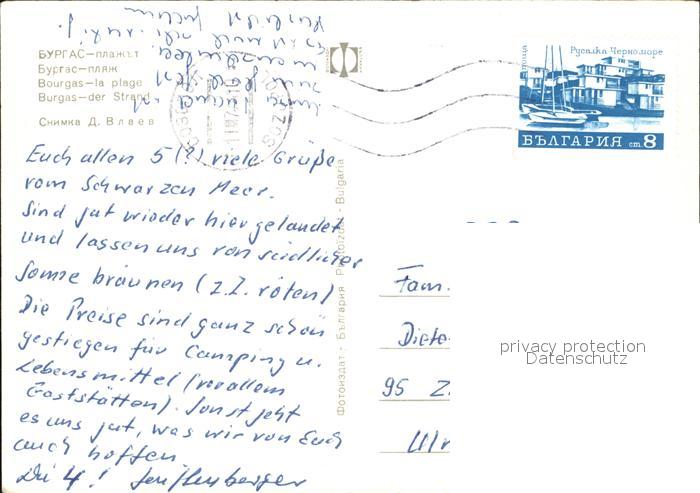 БУРГАС—плажът
Бургас—пляж
Bourgas—la plage
Burgas—der Strand
Снимка Д. Влаев
Euch allen 5 (?) viele Grüße
vom Schwarzen Meer.
Sind gut wieder hier gelandet
und lassen uns von südlicher
Sonne bräunen (z.Z. röten)
Die Preise sind ganz schön
gestiegen für Camping u.
Lebensmittel (vor allem
Gaststätten). Sonst geht
es uns gut, was wir von Euch
auch hoffen
Die 4!
Фотоиздат · България Photoizdat · Bulgaria
поща
Русалка Черно море
БЪЛГАРИЯ ст. 8
SOZOPOL
Fam.
Diete
95 Z.
privacy protection
Datenschutz